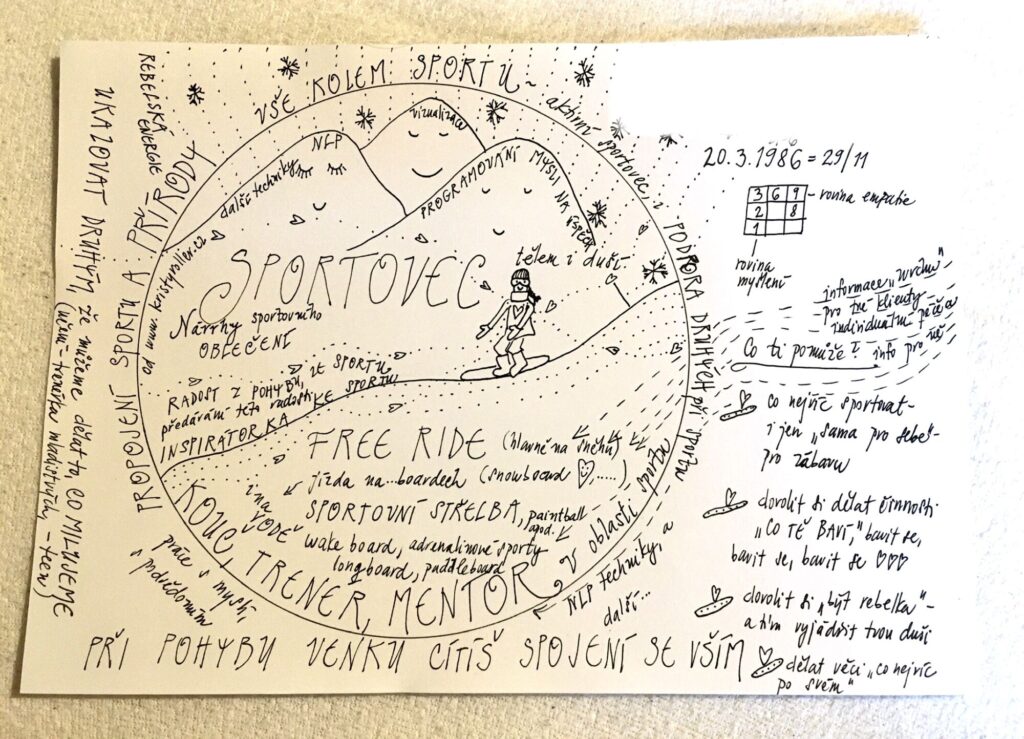 REBELSKÁ
ENERGIE
UKAZOVAT DRUHÝM, že můžeme dělat to, CO MILUJEME
(učím - trenérka mladistvých, - teen)
PROPOJENÍ SPORTU A PŘÍRODY
VŠE KOLEM SPORTU -
aktivní sportovec, i
PODPORA DRUHÝCH při sportu
vizualizace
NLP
další techniky
PROGRAMOVÁNÍ MYSLI NA
SPORTOVEC
tělem i duší.
Návrhy sportovního
OBLEČENÍ
RADOST Z POHYBU, ZE SPORTU
předávání této radosti ZE SPORTU
INSPIRÁTORKA
FREE RIDE (hlavně na sněhu)
jízda na...boardech (snowboard ,.....)
i na
VODĚ
SPORTOVNÍ STŘELBA, paintball
apod.
wake board, adrenalinové sporty
longboard, paddleboard
KOUČ, TRENÉR, MENTOR
v oblasti sportu
práce s myslí,
podvědomím
NLP techniky, a
další...
PŘI POHYBU VENKU CÍTÍŠ SPOJENÍ SE VŠÍM
20.3.1986 = 29/11
3 6 9 - rovina empatie
2 8
1
rovina
myšlení
informace „z vrchu"
pro tvé klienty
individuální péče a
info pro ně
Co ti pomůže?
co nejvíc sportovat -
i jen „sama pro sebe" -
pro zábavu
dovolit si dělat činnosti
„CO TĚ BAVÍ," bavit se,
bavit se, bavit se ♡♡♡
dovolit si „být rebelka" -
a tím vyjádřit tvou duši
dělat věci „co nejvíc
po svém"